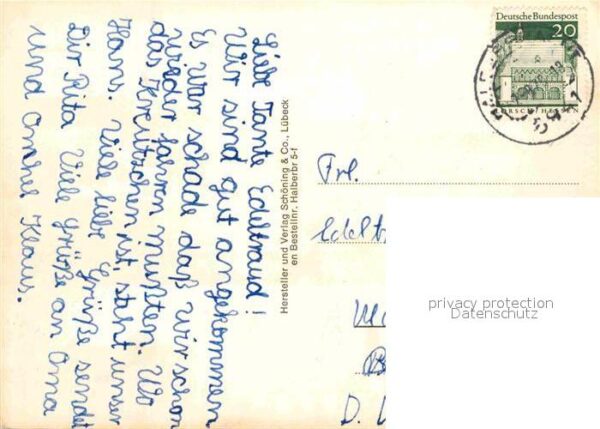 Liebe Tante Edeltraud!
Wir sind gut angekommen
Es war schade daß wir schon
wieder fahren mußten. Wo
das Kreutzchen ist, steht unser
Haus. Viele liebe Grüße sendet
Dir Rita Viele Grüße an Oma
und Onkel Klaus.
Hersteller und Verlag Schöning & Co., Lübeck
en Bestellnr. Halberbr 5-1
Deutsche Bundespost
20
LORSCH/HESSEN
Frl.
Edelt
D.
privacy protection
Datenschutz